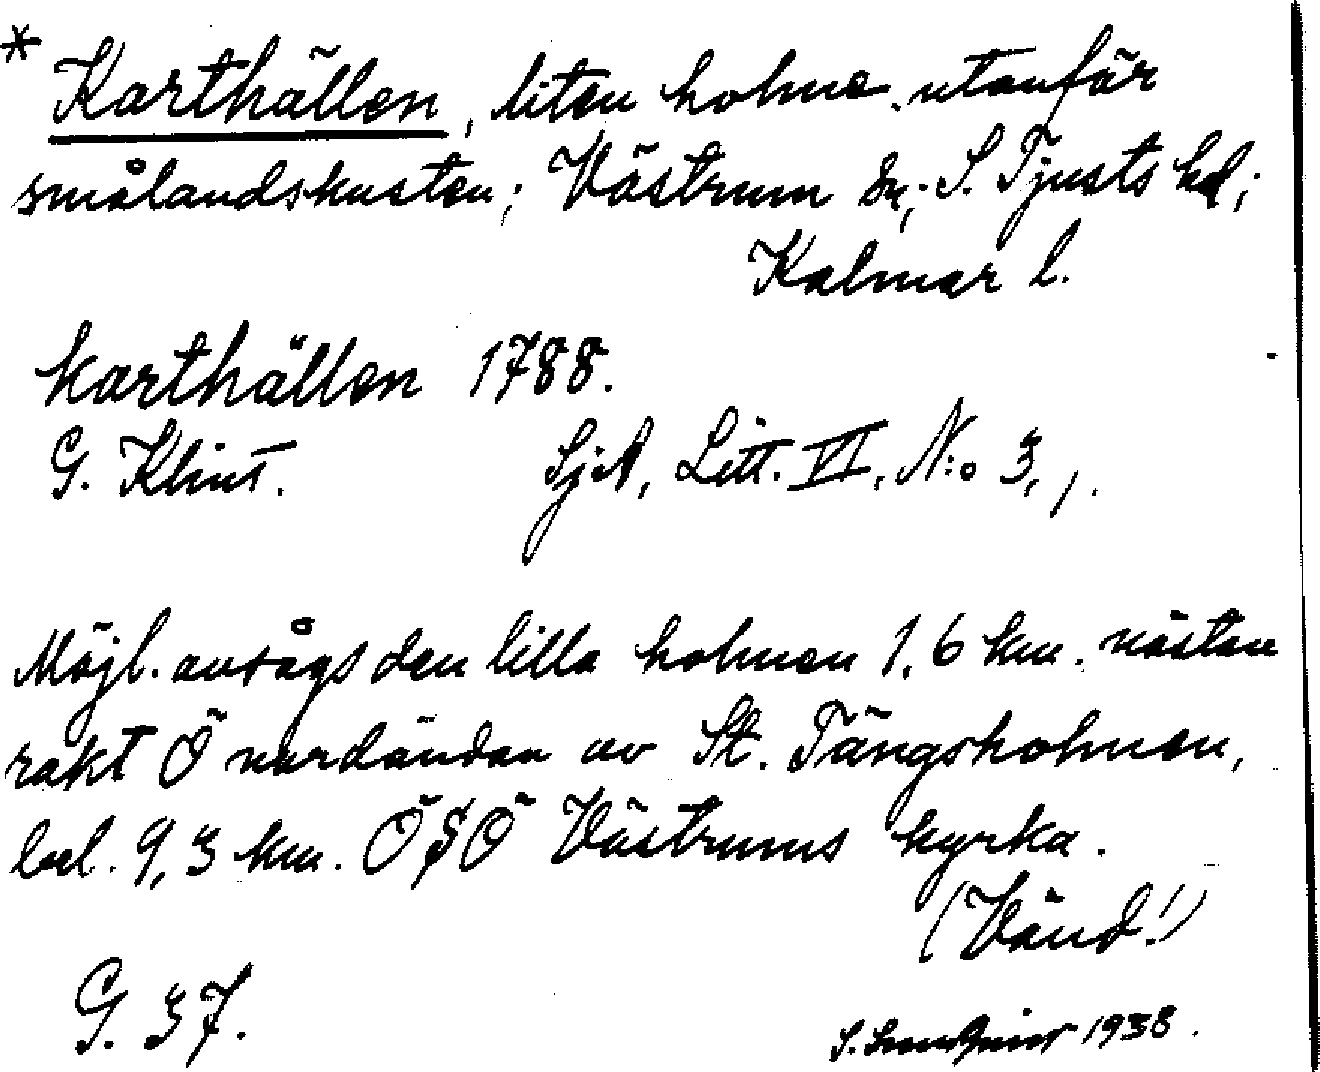 * Karthällen, liten holme utanför
smålandskusten; Västrum sn; S. Tjusts hd;
Kalmar l.
Karthällen 1788.
G. Klint. SjA, Litt. VI, N:o 3, 1.
Möjl. avsågs den lilla holmen 1,6 km. nästan
rakt Ö nordändan av St. Tängsholmen,
bel. 9,3 km. ÖSÖ Västrums kyrka.
(Vänd!)
G. 37.
S. 1938.